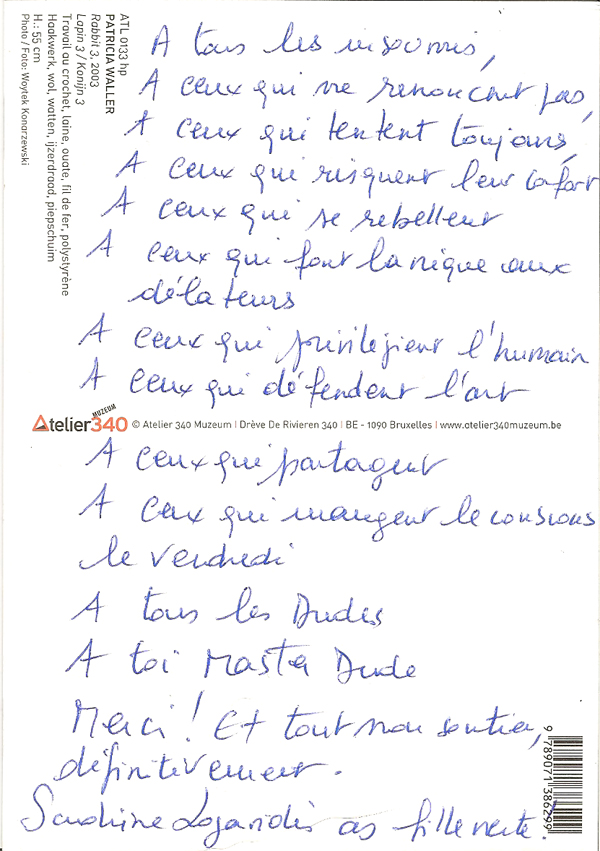 ATL 0133 hp
PATRICIA WALLER
Rabbit 3, 2003
Lapin 3 / Konijn 3
Travail au crochet, laine, ouate, fil de fer, polystyrène
Haakwerk, wol, watten, ijzerdraad, piepschuim
H.: 55 cm
Photo / Foto: Woytek Konarzewski
A tous les insoumis,
A ceux qui ne renoncent pas,
A ceux qui tentent toujours,
A ceux qui risquent leur confort
A ceux qui se rebellent
A ceux qui font la nique aux
délateurs
A ceux qui privilégient l'humain
A ceux qui défendent l'art
Atelier 340 MUZEUM © Atelier 340 Muzeum | Drève De Rivieren 340 | BE - 1090 Bruxelles | www.atelier340muzeum.be
A ceux qui partagent
A ceux qui mangent le couscous
le vendredi
A tous les Dudes
A toi Master Dude
Merci ! Et tout mon soutien,
définitivement.
Sandrine as fille verte.
9 789071 386299